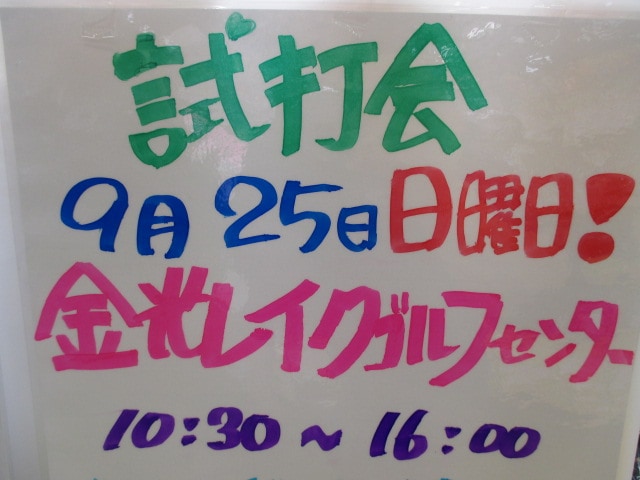 試打会
9月25日日曜日!
金光レイクゴルフセンター
10:30～16:00